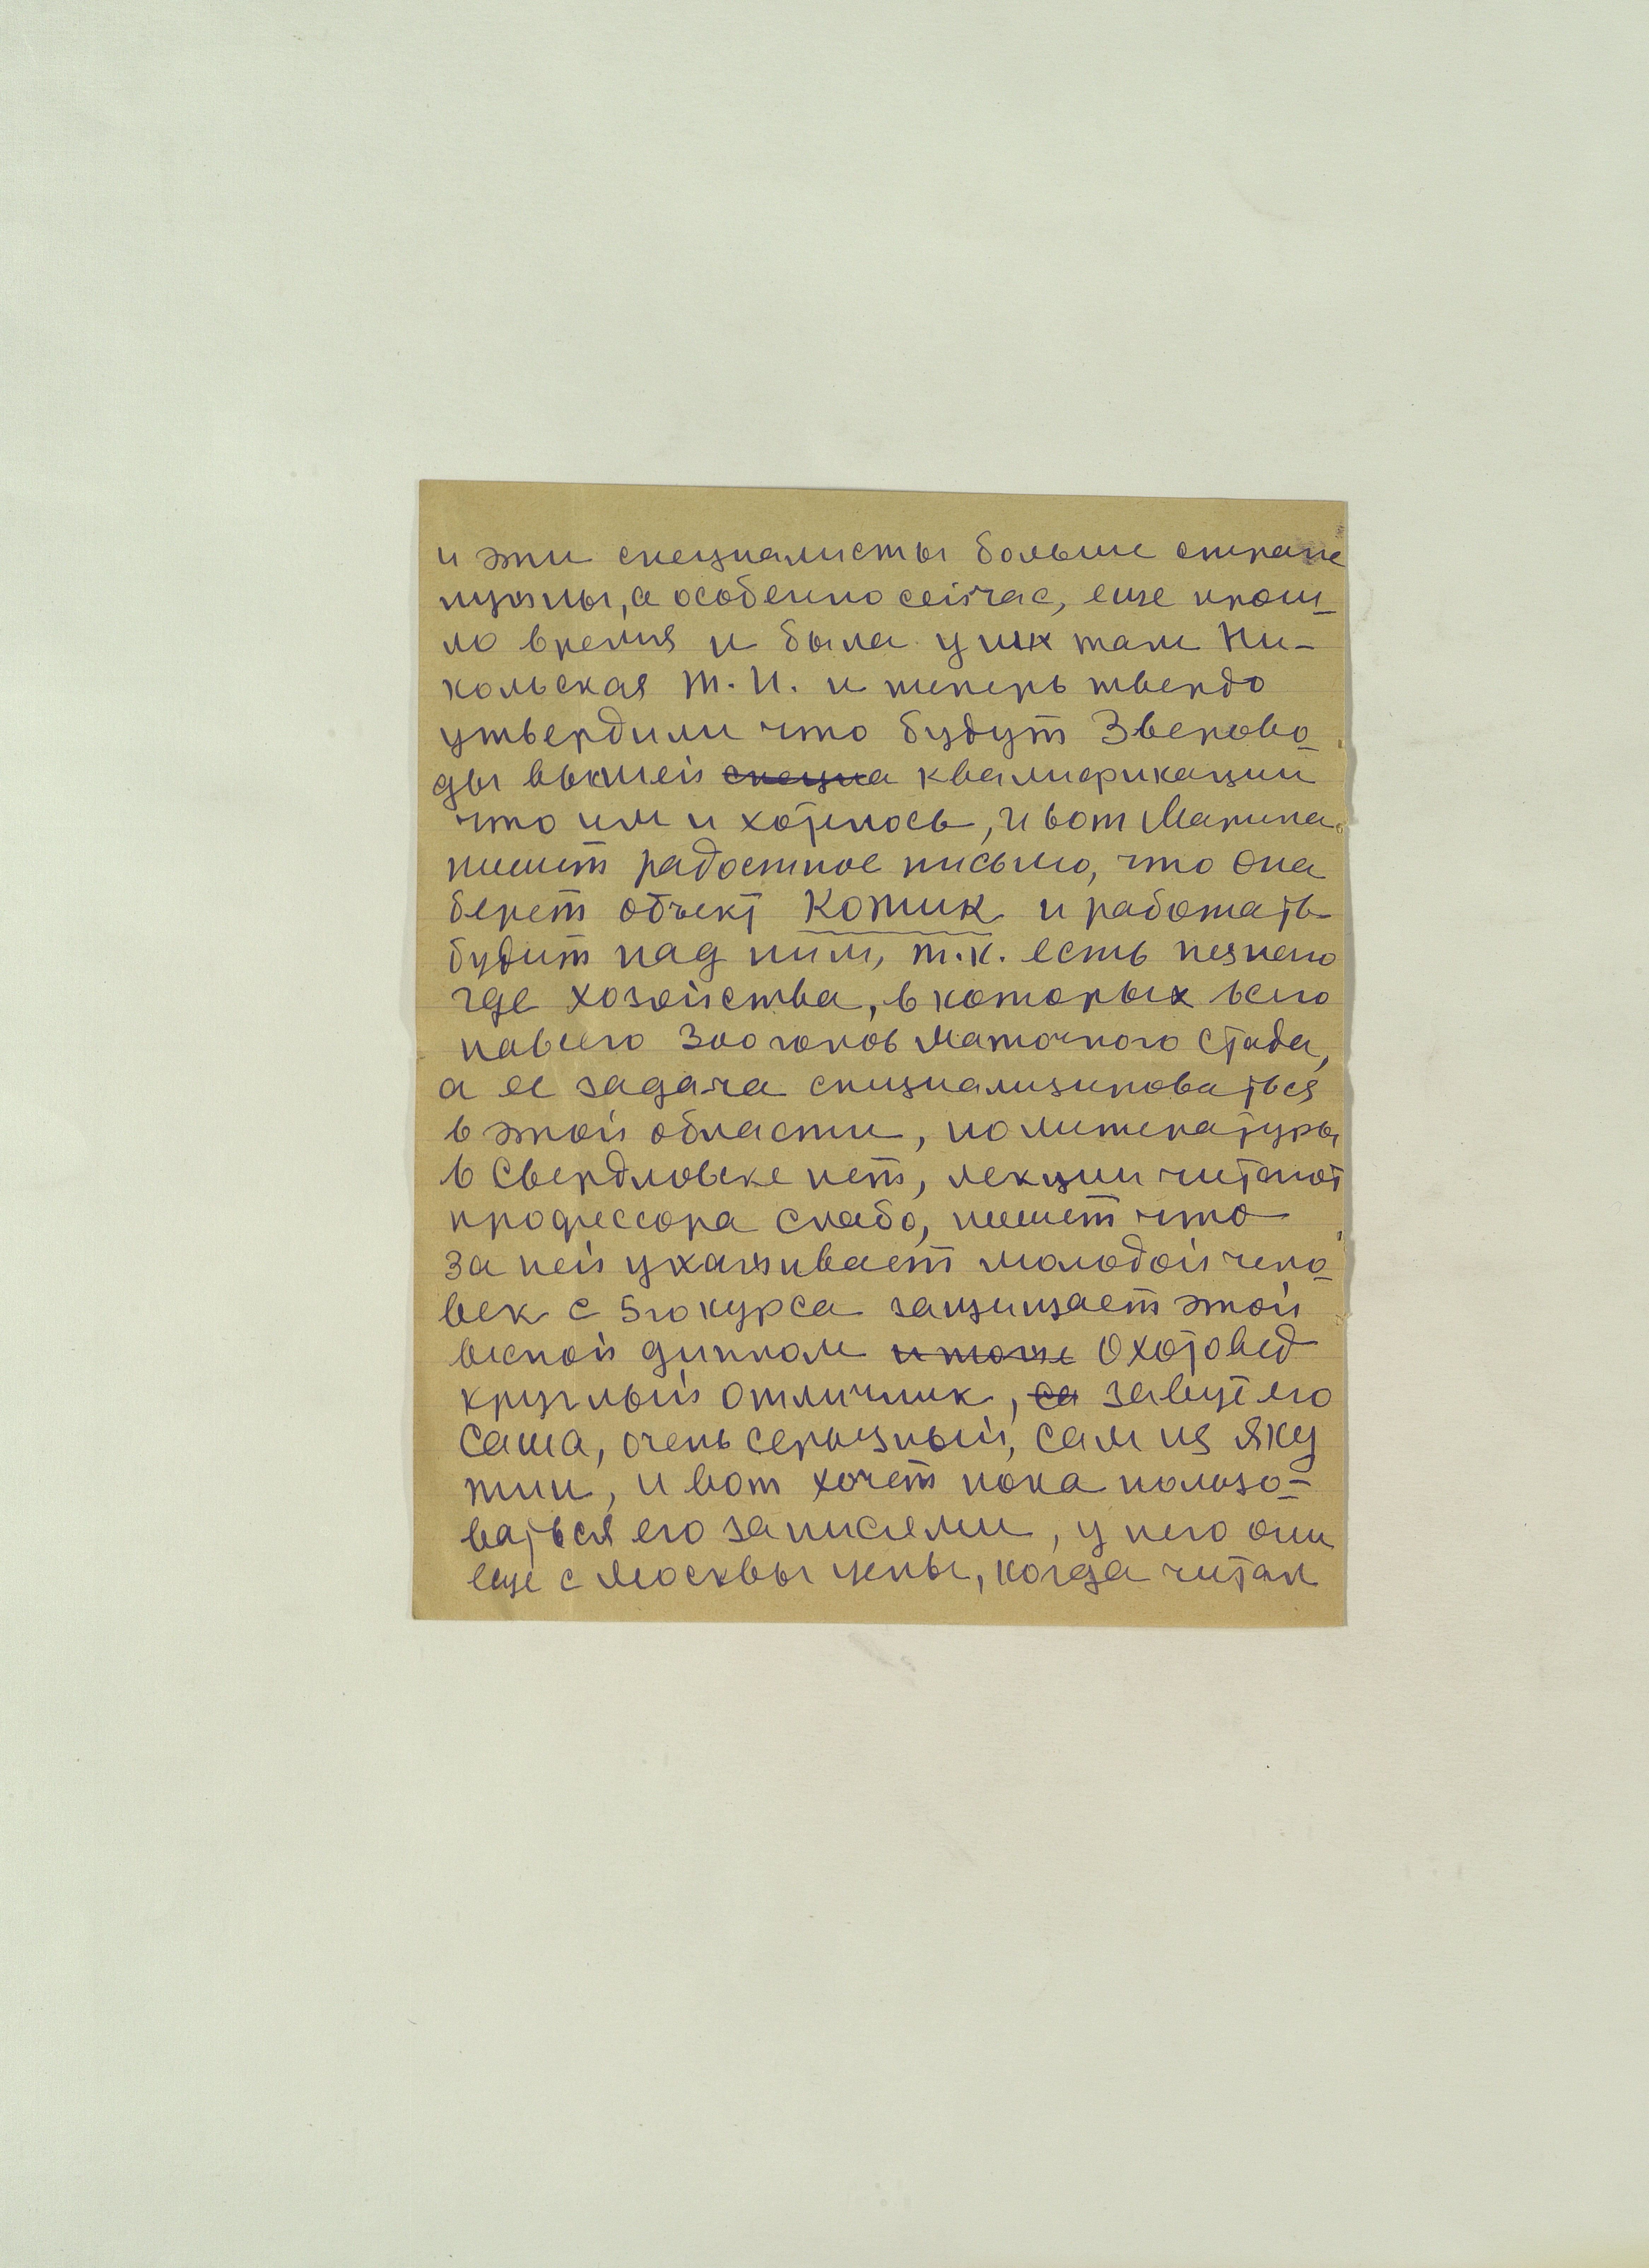 и эти специалисты больше стране
нужны, а особенно сейчас, еще прош-
ло время и была у них там Ни-
кольская Т. И. и теперь твердо
утвердили что будут Зверово-
ды высшей специа квалификации
что им и хотелось, и вот Марина
пишет радостное письмо, что она
берет объект Котик и работать
будит над ним, т.к. есть
где хозяйства, в которых всего
навсего 300 голов маточного стада,
а ее задача специализироваться
в этой области, но литературы
в Свердловске нет, лекции читают
профессора слабо, пишет что
за ней ухаживает молодой чело-
век с 5го курса защищает этой
весной диплом и тоже Охотовед
круглый отличник, са завут его
Саша, очень серьезный, сам из Яку
тии, и вот хочет пока пользо-
ваться его записями, у него они
еще с Москвы целы, когда читал